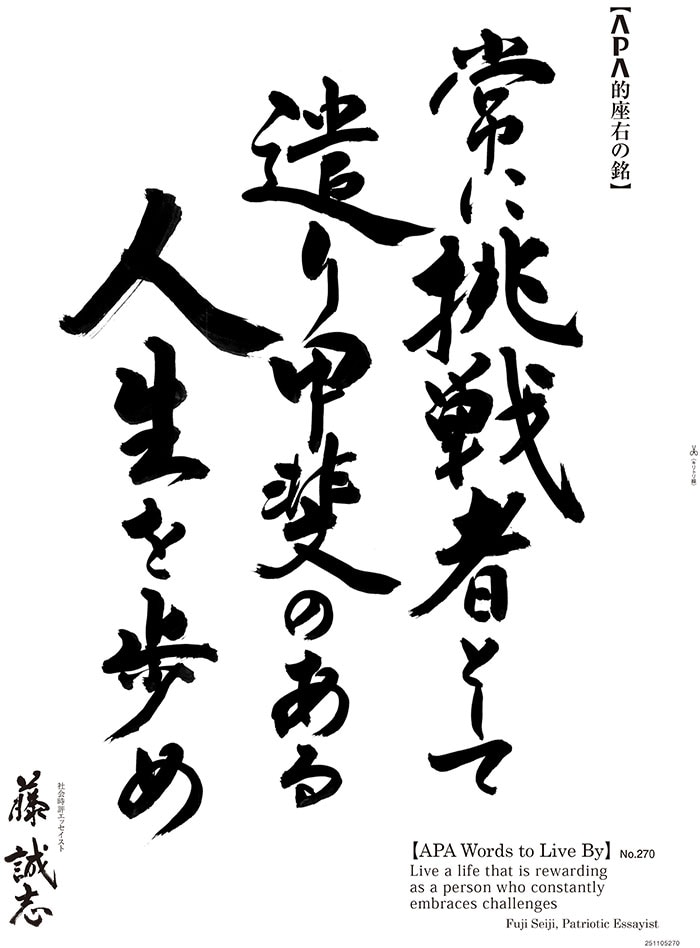 【APA的座右の銘】
常に挑戦者として
遣り甲斐のある
人生を歩め
社会時評エッセイスト
藤誠志
【APA Words to Live By】 No.270
Live a life that is rewarding
as a person who constantly
embraces challenges
Fuji Seiji, Patriotic Essayist
251105270
(キリトリ線)